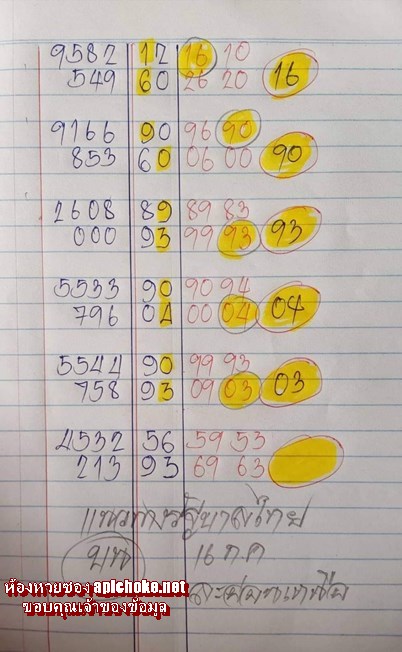 9582 12 16 10
549 60 26 20 16
9166 90 96 90
853 60 06 00 90
2608 89 89 83
000 93 99 93 93
5533 90 90 94
796 04 00 04 04
5544 90 99 93
758 93 09 03 03
4532 56 59 53
213 93 69 63
แนวทางรัฐบาลไทย
บน 16 ก.ค
ห้องหวยซอง apichoke.net
ขอบคุณเจ้าของข้อมูล